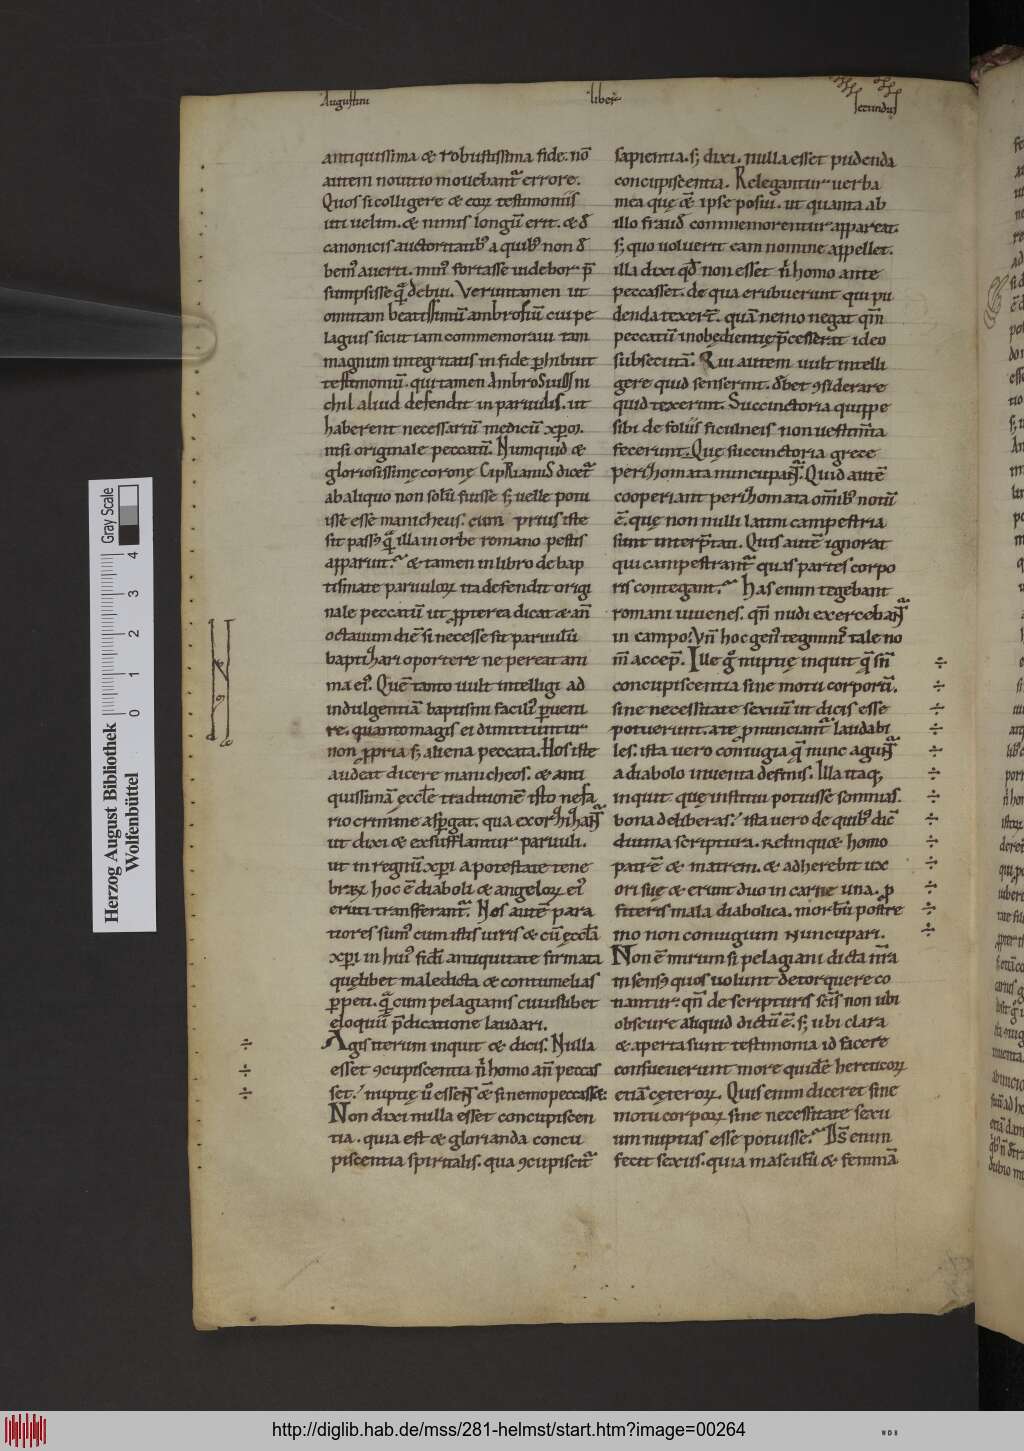 Augustini liber secundus
antiquissima & robustissima fide. nō
autem nouitio mouebant᷑ errore.
Quos si colligere & eoꝝ testimoniis
uti uelim. & nimis longū erit. & d̄
canonicis auctoritatibꝰ a quibꝰ non d̄
bemꝰ auerti. minꝰ fortasse uidebor p̄
sumpsisse quā debui. Veruntamen ut
omittam beatissimū ambrosiū cui pe
lagius sicut iam commemoraui tam
magnum integritatis in fide ꝑhibuit
testimoniū. qui tamen Ambrosius ni
chil aliud defendit in paruulis. ut
haberent necessariū medicū xp̄om.
nisi originale peccatū. Numquid &
gloriosissimę coronę CipRianuS dicet᷑
ab aliquo non solū fuisse s; uelle potu
isse esse manicheus. cum prius iste
sit passꝰ quā illa in orbe romano pestis
apparuit.? & tamen in libro de bap
tismate paruuloꝝ ita defendit origi
nale peccatū ut ꝓpterea dicat & an̄
octauum diē si necesse sit paruulū
baptizari oportere ne pereat ani
ma eiꝰ. Quē tanto uult intelligi ad
indulgentiā baptismi faciliꝰ ꝑueni
re. quanto magis ei dimittuntur
non ꝓpria s; aliena peccata. Hos iste
audeat dicere manicheos. & anti
quissimā ęccl̄e traditionē isto nefa
rio crimine aspergat. qua exorzizant᷑
ut dixi & exsufflantur paruuli.
ut in regnū xp̄i a potestate tene
braꝝ hoc ē diaboli & angeloꝝ eiꝰ
eruti transferant᷑. Nos autē para
tiores sumꝰ cum istis uiris & cū ęccl̄a
xp̄i in huiꝰ fidei antiquitate firmata
quęlibet maledicta & contumelias
ꝑpeti. quā cum pelagianis cuiuslibet
eloquii p̄dicatione laudari.
Agis iterum inquit & dicis. Nulla
esset ꝯcupiscentia n̄ homo an̄ peccas
set.? nuptię u̾o essent & si nemo peccasset
Non dixi nulla esset concupiscen
tia. quia est & glorianda concu
piscentia spiritalis. qua ꝯcupiscit᷑
sapientia. s; dixi. nulla esset pudenda
concupiscentia. Relegantur uerba
mea quę & ipse posui. ut quanta ab
illo fraud̄ commemorentur appareat.
s; quo uoluerit eam nomine appellet.
illa dixi qd̄ non esset n̄ homo ante
peccasset. de qua erubuerunt qui pu
denda texer̄t. quā nemo negat qm̄
peccatū inobędientię p̄cesserat ideo
subsecutā. Qui autem uult intelli
gere quid senserint. debet ꝯsiderare
quid texerint. Succinctoria quippe
sibi de foliis ficulneis non uestimīta
fecerunt. Quę succinctoria grece
perizomata nuncupant᷑. Quid autē
cooperiant perizomata omībꝰ notū
ē. quę non nulli latini campestria
sunt interp̄tati. Quis autē ignorat
qui campestrant᷑ quas partes corpo
ris contegant.? Has enim tegebant
romani iuuenes. qn̄ nudi exercebant᷑
in campo. Vn̄ hoc genꝰ tegminiꝰ tale no
m̄ accep̄. Ille ḡ nuptię inquit quę sn̄
concupiscentia sine motu corporū.
sine necessitate sexuū ut dicis esse
potuerunt. a te ꝓnunciant᷑ laudabi
les. ista uero coniugia quę nunc agunt᷑
a diabolo inuenta definis. Illa itaq;
inquit quę institui potuisse somnias.
bona deliberas.? ista uero de quibꝰ dic̄
diuina scriptura. Relinqu& homo
patrē & matrem. & adherebit ux
ori suę & erunt duo in carne una. ꝓ
fiteris mala diabolica. morbū postre
mo non coniugium nuncupari.
Non ē mirum si pelagiani dicta nr̄a
in sensꝰ quos uolunt detorquere co
nantur. qn̄ de scripturis scīs non ubi
obscure aliquid dictū ē. s; ubi clara
& aperta sunt testimonia id facere
consueuerunt more quidē hereticoꝝ
etiā ceteroꝝ. Quis enim diceret sine
motu corpoꝝ sine necessitate sexu
um nuptias esse potuisse.? Ds̄ enim
fecit sexus. quia masculū & feminā
Herzog August Bibliothek
Wolfenbüttel
0 1 2 3 4
Gray Scale
http://diglib.hab.de/mss/281-helmst/start.htm?image=00264